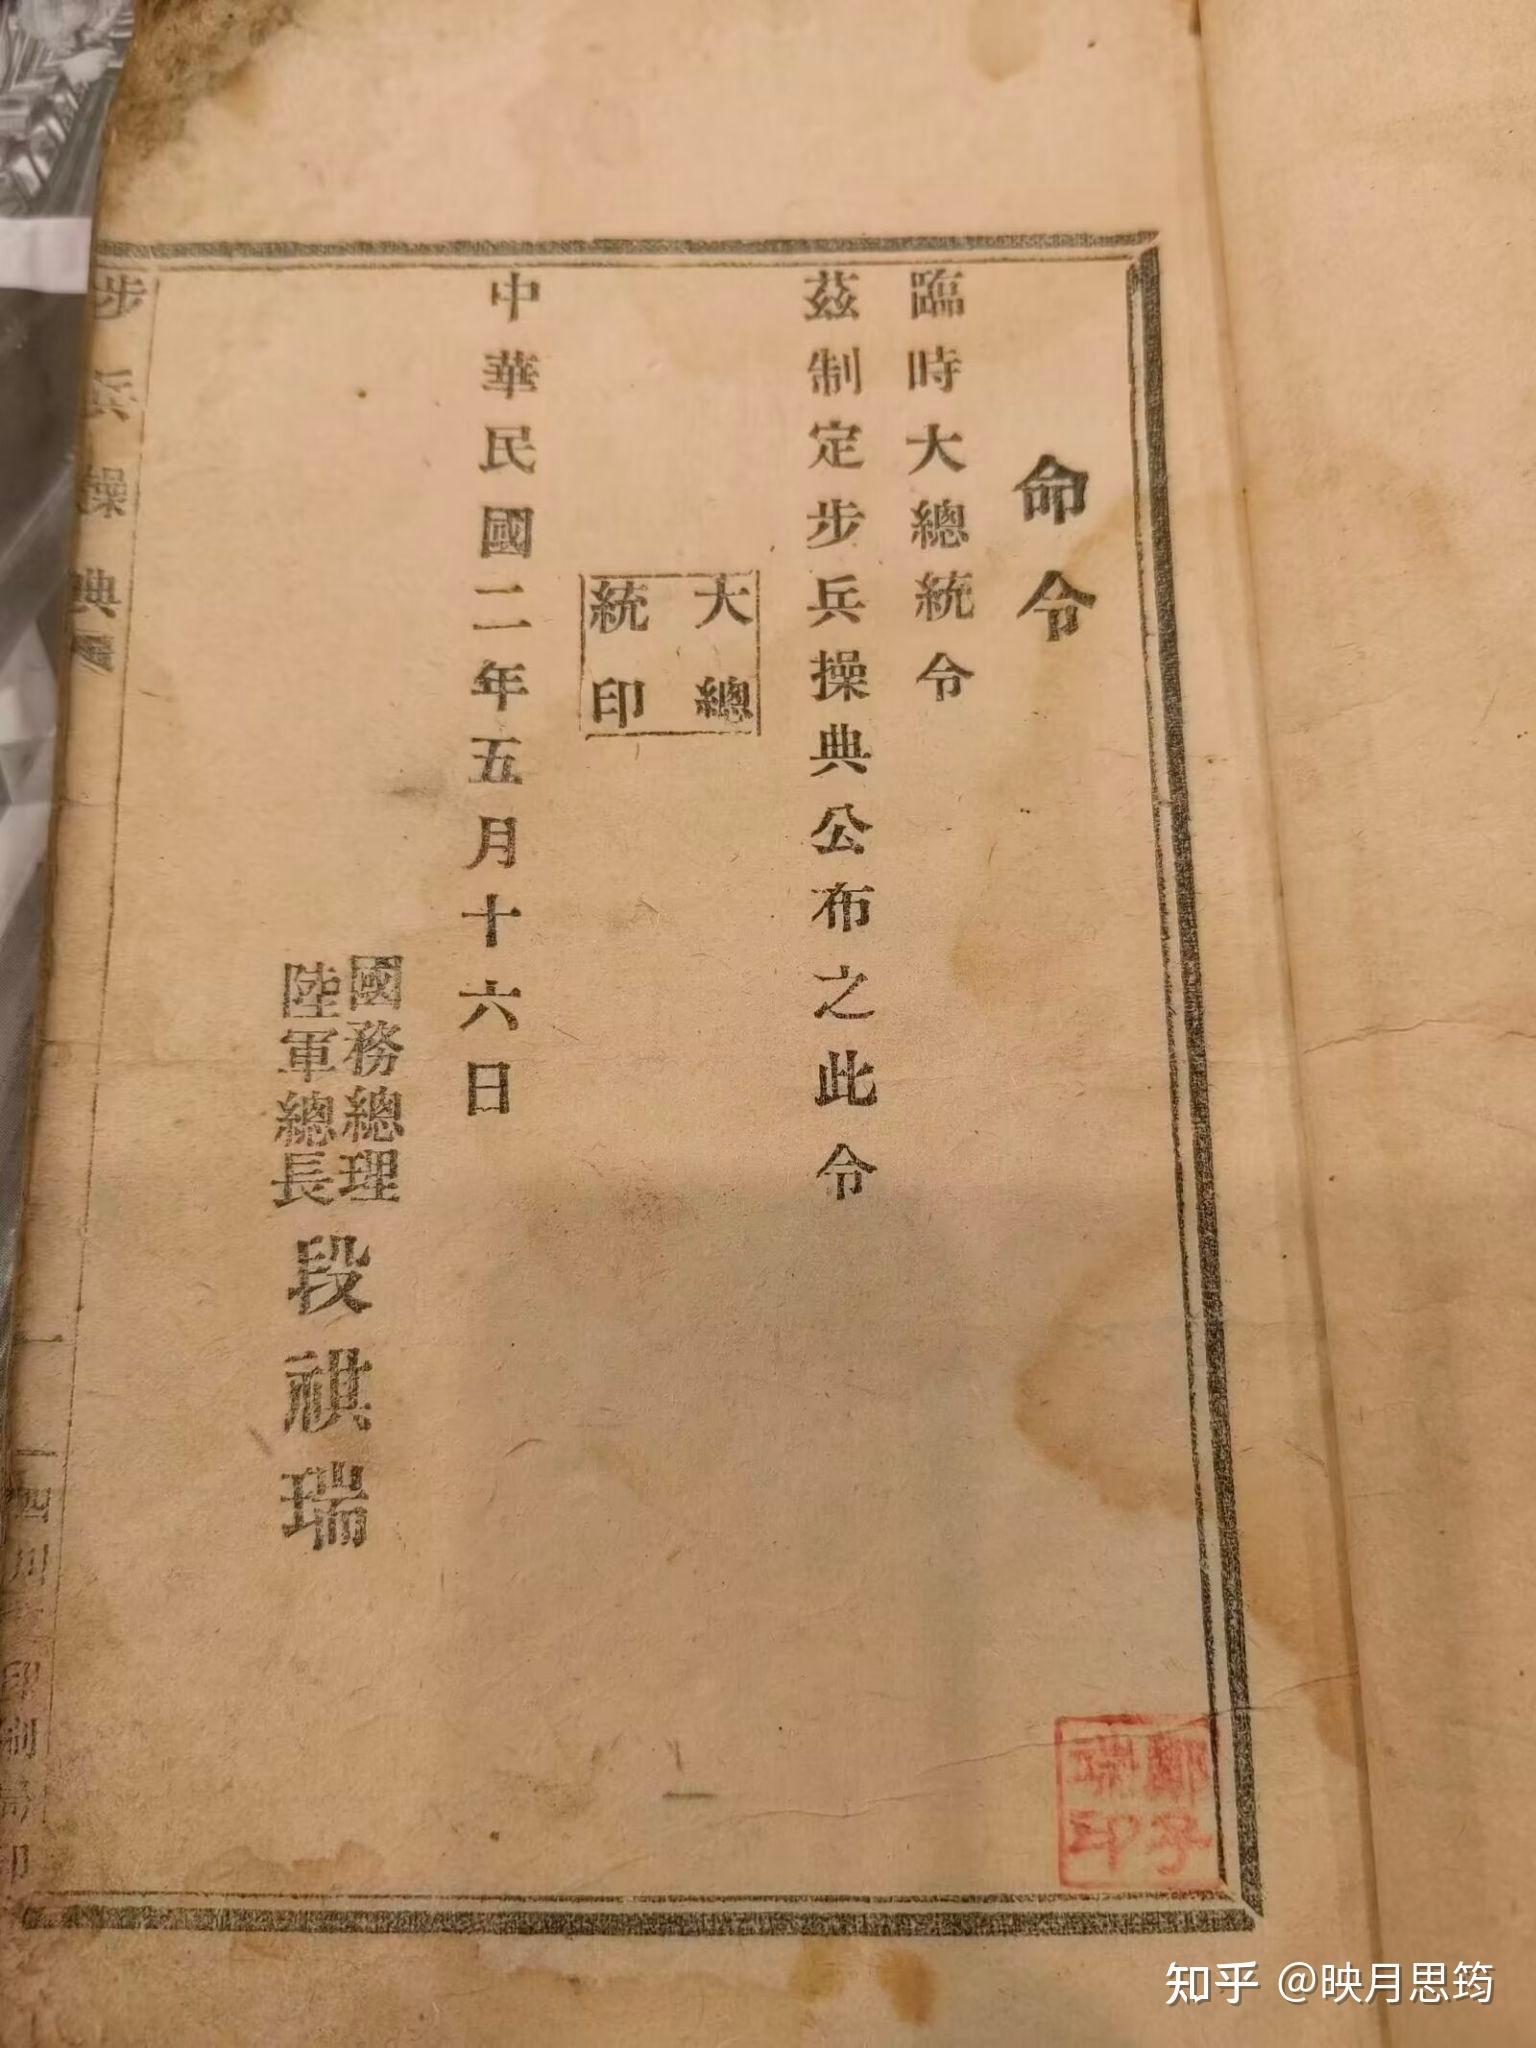 命令
臨時大總統令
茲制定步兵操典公布之此令
大總
統印
中華民國二年五月十六日
國務總理
陸軍總長
段祺瑞
一
步兵操典
一
四川
印制局印
子
瑞印
知乎 @映月思筠